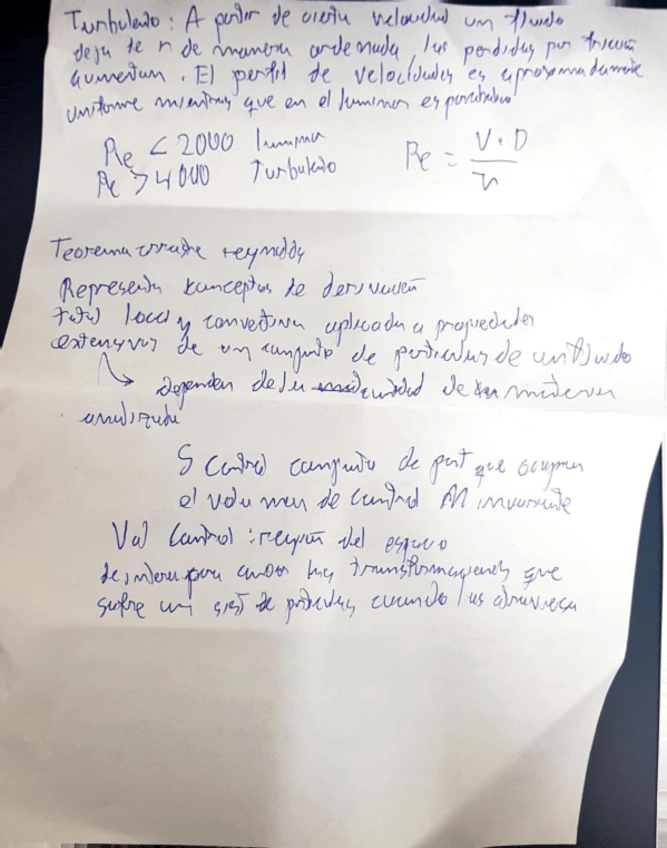 Turbulento: A partir de cierta velocidad un fluido
deja de ir de manera ordenada, las perdidas por fricción
aumentan. El perfil de velocidades es aproximadamente
uniforme mientras que en el laminar es parabolico
Re < 2000 laminar
Re > 4000 Turbulento
Re = V · D / ν
Teorema reynolds
Representa conceptos de derivación
total local y convectiva aplicada a propiedades
extensivas de un conjunto de particulas de un fluido
dependen de la cantidad de materia
analizada
S Control conjunto de part que ocupan
el volumen de control M invariante
Vol Control: región del espacio
de interes para las transformaciones que
sufre un sist de particulas cuando las atraviesa